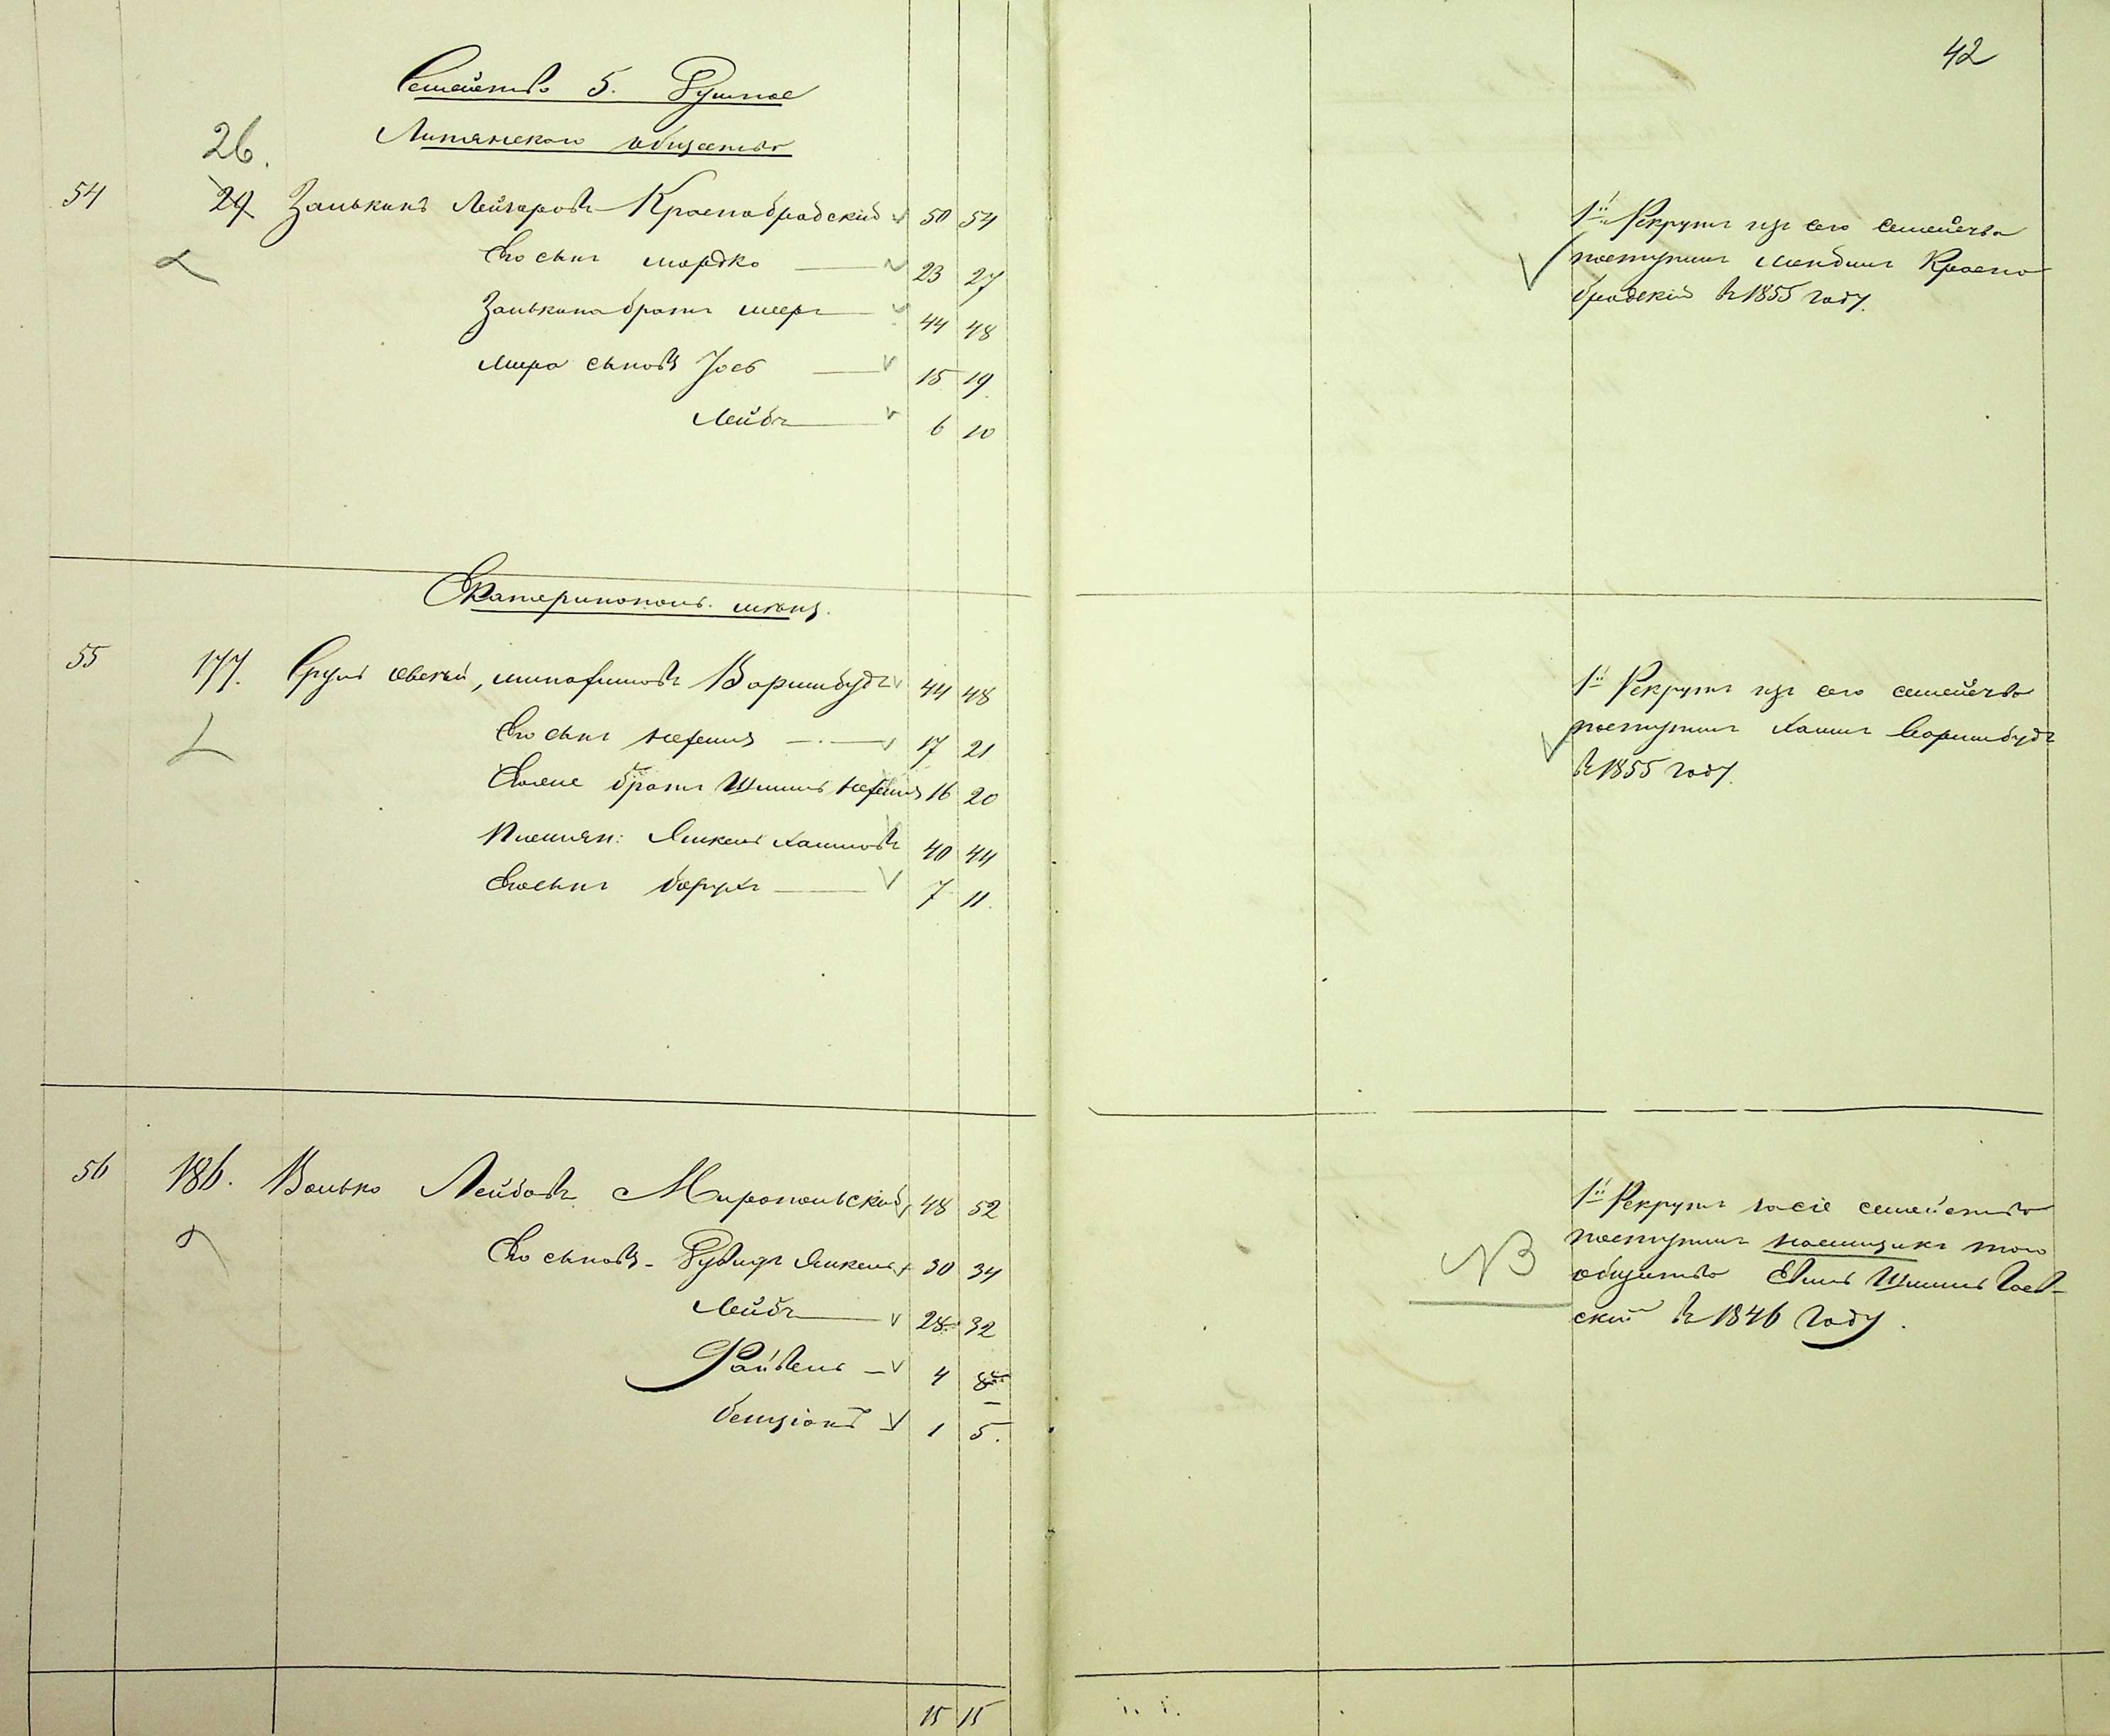 42
Семейство 5. Душное
Литянского общества
26.
54 29 Залькинъ Лейзаровъ Краснобродскій 50 54
Его сынъ Мордко 23 27
Залькина братъ Мееръ 44 48
Меера сыновья Іосъ 15 19
Лейба 6 10
1й Рекрутъ изъ сего семейства
поступилъ Мендель Красно
бродскій въ 1855 году.
Екатеринополь. мѣщ.
55 177. Сруль Овсѣй, Варшибудъ 44 48
Его сынъ Нефтула 17 21
Овсея братъ Шмуль 16 20
Племян: Янкель Хаимовъ 40 44
Его сынъ Борухъ 7 11.
1й Рекрутъ изъ сего семейства
поступилъ Хаимъ Варшибудъ
въ 1855 году.
56 186. Волько Лейбовъ Миропольскій 48 52
Его сыновья Дувидъ Янкель 30 34
Лейба 28 32
Файвель 4 8
Бенціонъ 1 5.
NB
1й Рекрутъ за сіе семейство
поступилъ наемщикъ того
общества Шмуль
скій въ 1846 году.
15 15